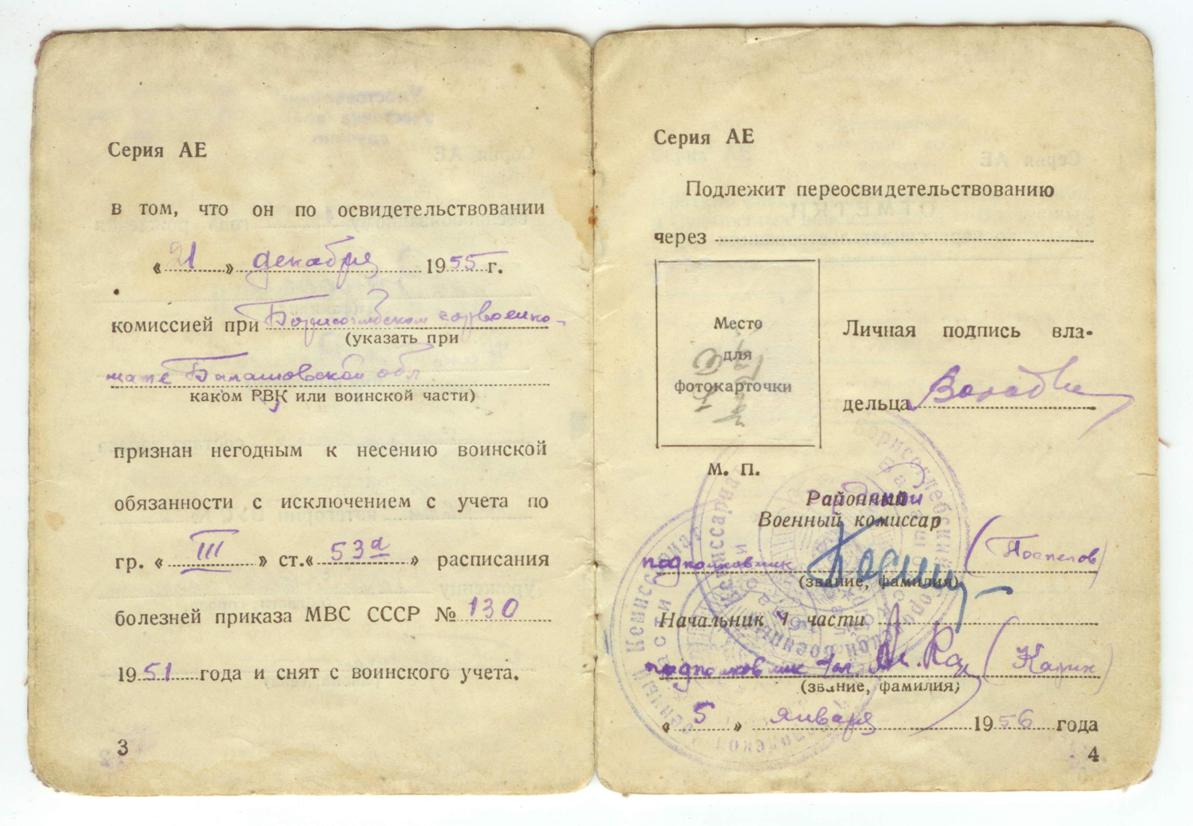 Серия АЕ
в том, что он по освидетельствовании
« 21 » декабря 1955 г.
комиссией при Борисоглебском горвоенко-
(указать при
мате Балашовской обл
каком РВК или воинской части)
признан негодным к несению воинской
обязанности с исключением с учета по
гр. « III » ст. « 53а » расписания
болезней приказа МВС СССР № 130
1951 года и снят с воинского учета.
3
Серия АЕ
Подлежит переосвидетельствованию
через
Место
для
фотокарточки
Личная подпись вла-
дельца
М. П.
Районный
Военный комиссар
подполковник (Поспелов)
(звание, фамилия)
Начальник 4 части
подполковник (Карих)
(звание, фамилия)
« 5 » января 1956 года
4